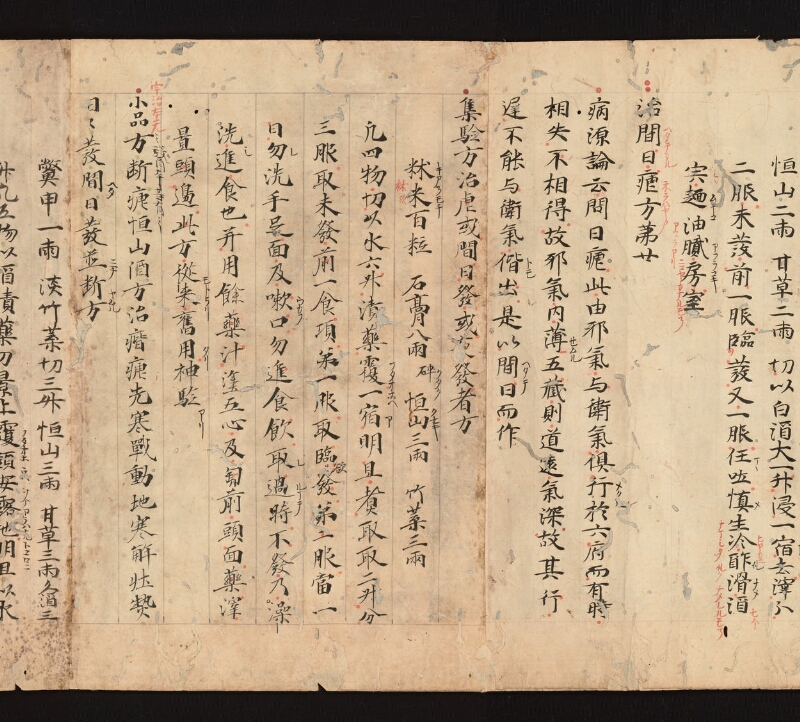 恒山二兩 甘草二兩 切以白酒大一升浸一宿去滓分
二服未發前一服臨發又一服任吐慎生冷酢滑酒
宍麺油膩房室
治間日瘧方第廿
病源論云間日瘧此由邪氣与衛氣俱行於六府而有時
相失不相得故邪氣内薄五蔵則道遠氣深故其行
遅不能与衛氣偕出是以間日而作
集驗方治虐或間日發或夜發者方
秫米百粒 石膏八兩 碎 恒山三兩 竹葉三兩
凢四物切以水六升漬藥覆一宿明旦煑取取二升分
三服取未發前一食頃第一服取臨欲發第二服當一
日勿洗手足面及嗽口勿進食飲取過時不發乃澡
洗進食也并用餘藥汁塗五心及匈前頭面藥滓
置頭邊此方従来舊用神驗
小品方断瘧恒山酒方治瘤瘧先寒戰動地寒解壮热
日〻發間日發並断方
鱉甲一兩 淡竹葉切三升 恒山三兩 甘草三兩 久酒三
升凢五物以酒漬藥